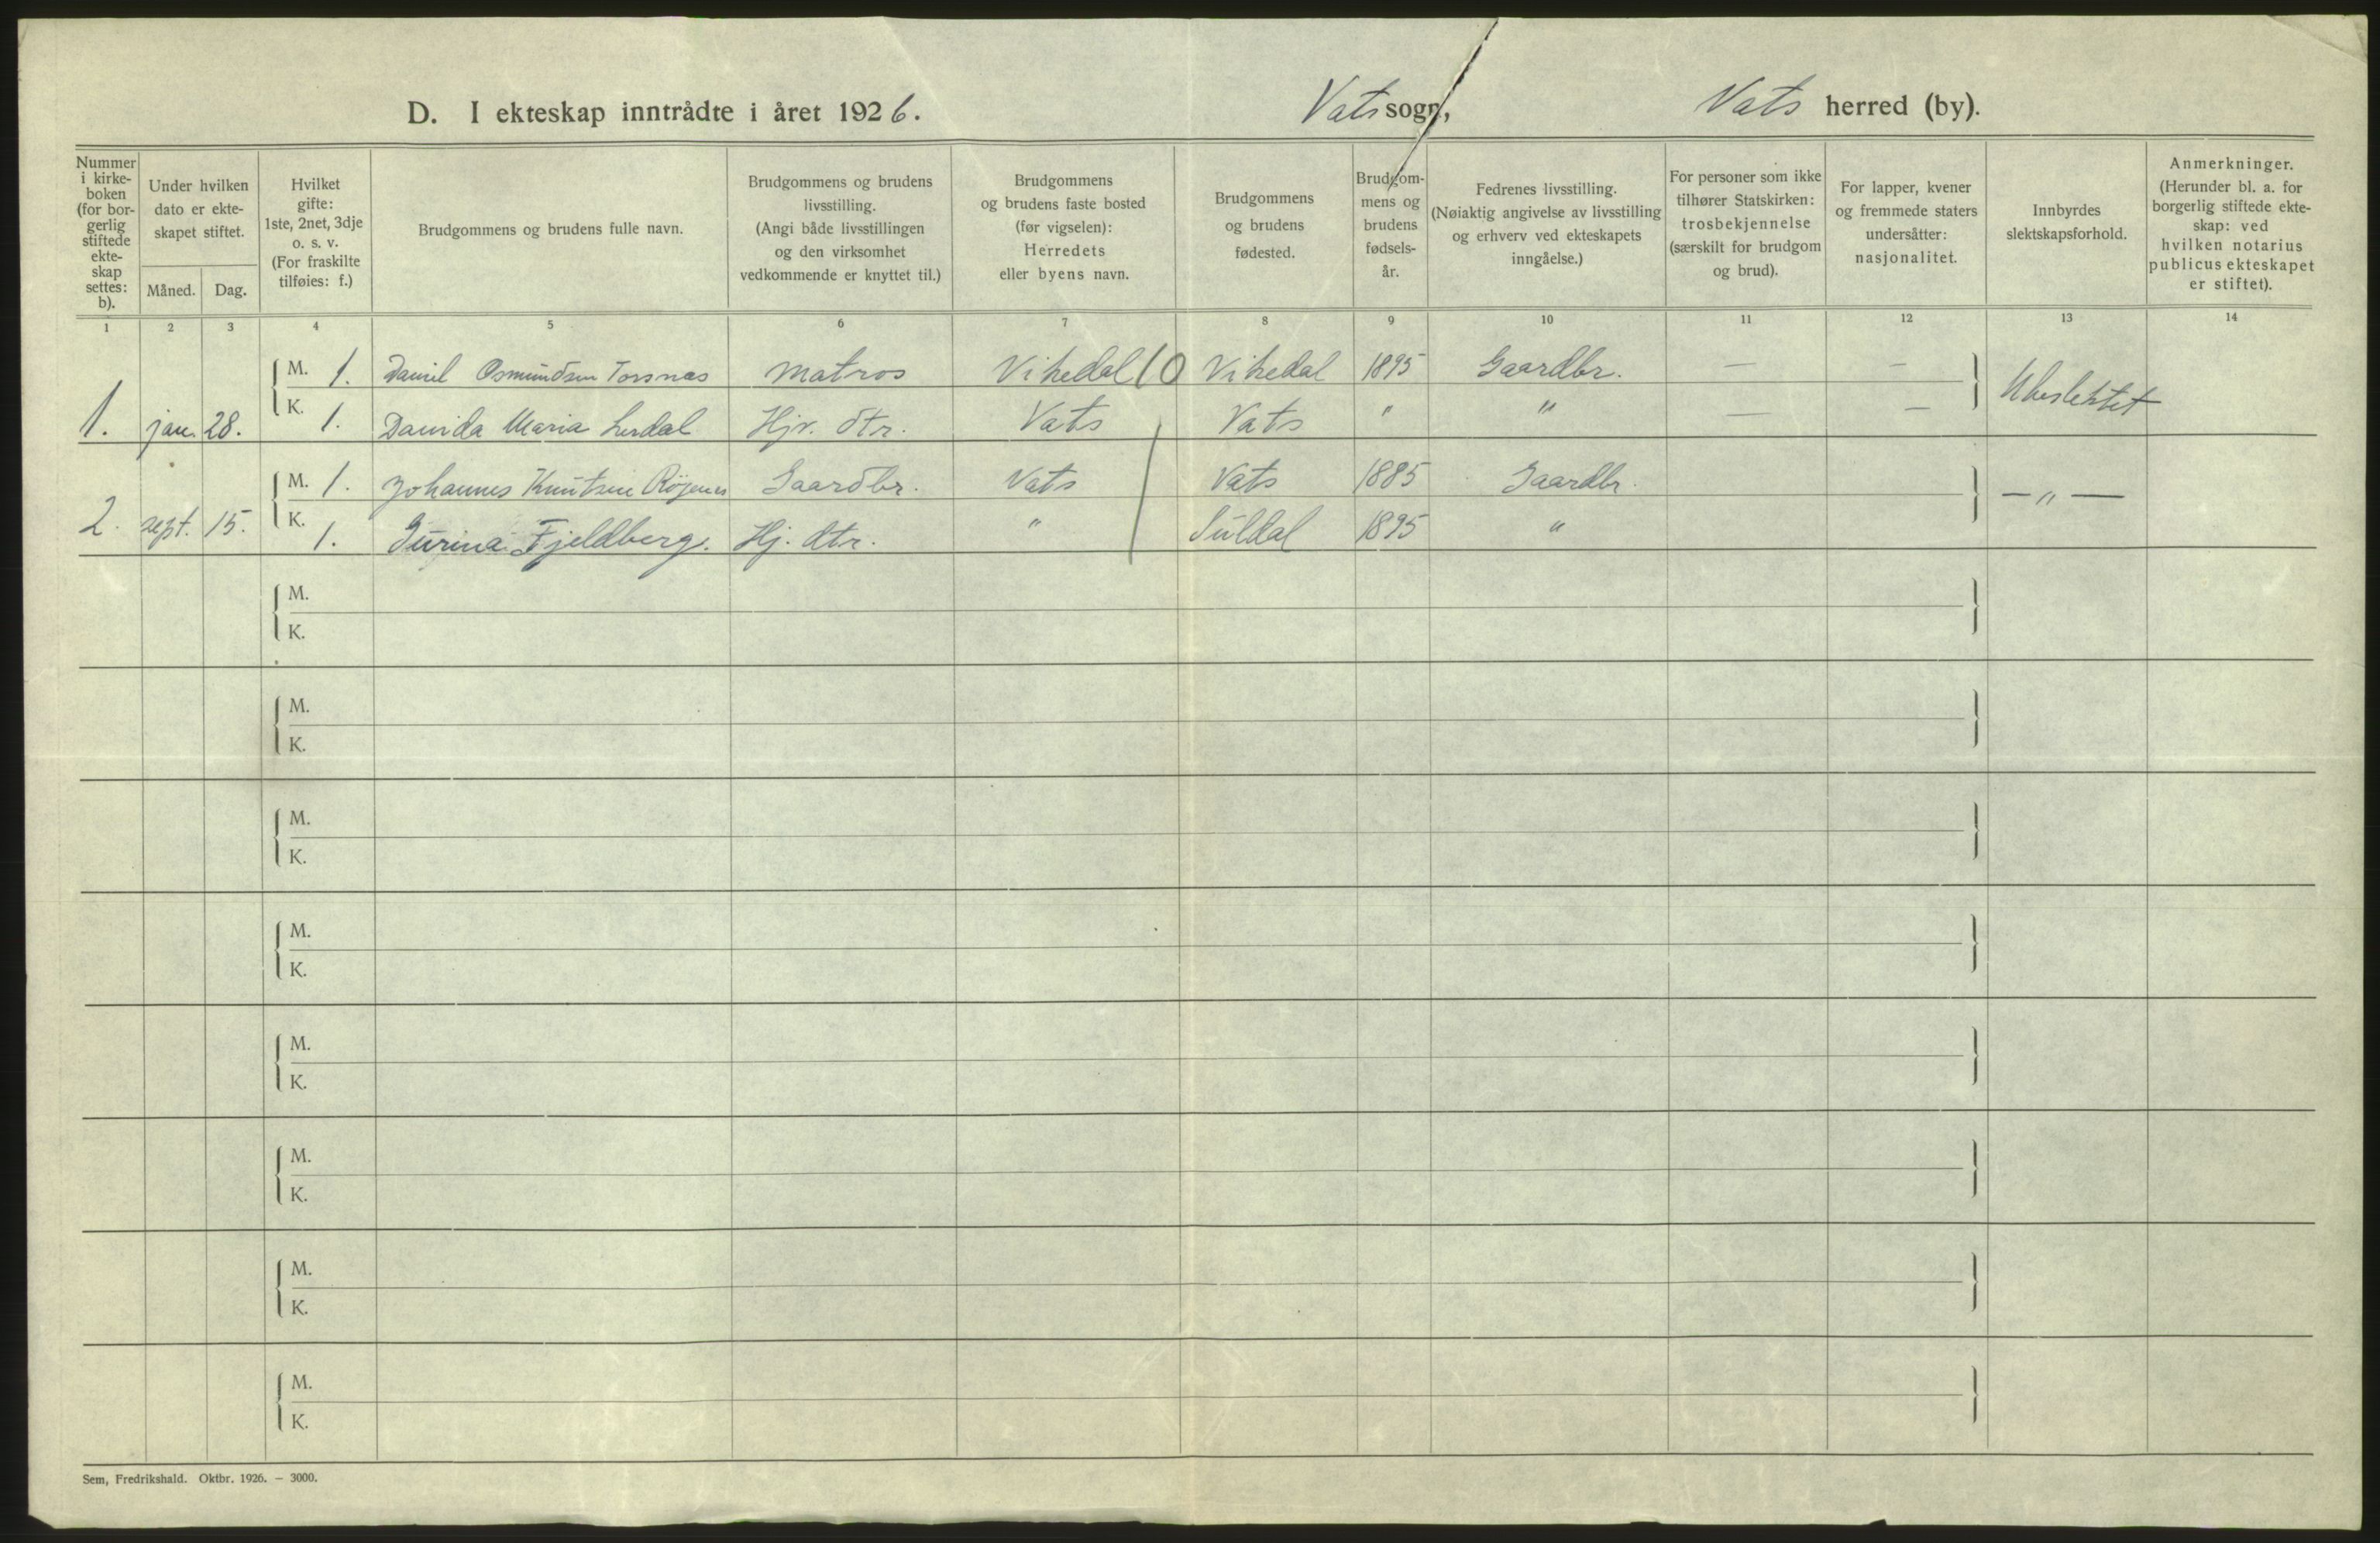 D. I ekteskap inntrådte i året 1926. Vats sogn, Vats herred (by).
Nummer
i kirke-
boken
(for bor-
gerlig
stiftede
ekte-
skap
settes:
b).
Under hvilken
dato er ekte-
skapet stiftet.
Måned. Dag.
Hvilket
gifte:
1ste, 2net, 3dje
o. s. v.
(For fraskilte
tilføies: f.)
Brudgommens og brudens fulle navn.
Brudgommens og brudens
livsstilling.
(Angi både livsstillingen
og den virksomhet
vedkommende er knyttet til.)
Brudgommens
og brudens faste bosted
(før vigselen):
Herredets
eller byens navn.
Brudgommens
og brudens
fødested.
Brudgom-
mens og
brudens
fødsels-
år.
Fedrenes livsstilling.
(Nøiaktig angivelse av livsstilling
og erhverv ved ekteskapets
inngåelse.)
For personer som ikke
tilhører Statskirken:
trosbekjennelse
(særskilt for brudgom
og brud).
For lapper, kvener
og fremmede staters
undersåtter:
nasjonalitet.
Innbyrdes
slektskapsforhold.
Anmerkninger.
(Herunder bl. a. for
borgerlig stiftede ekte-
skap: ved
hvilken notarius
publicus ekteskapet
er stiftet).
1 2 3 4 5 6 7 8 9 10 11 12 13 14
M. 1. Daniel Osmundsen Torsnes Matros Vikedal 10 Vikedal 1895 Gaardbr. — —
1. jan. 28. K. 1. Davida Maria Lerdal Hjv. dtr. Vats Vats " " — — Ubeslektet
M. 1. Johannes Knutsen Gaardbr. Vats Vats 1885 Gaardbr. — " —
2. sept. 15. K. 1. Gurina Fjeldberg. Hj. dtr. " Suldal 1895 "
M.
K.
M.
K.
M.
K.
M.
K.
M.
K.
M.
K.
M.
K.
M.
K.
Sem, Fredrikshald. Oktbr. 1926. — 3000.